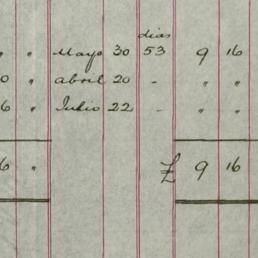 dias
" " Mayo 30 53 9 16
0 " abril 20 - " "
6 " Julio 22 - " "
6 " £ 9 16